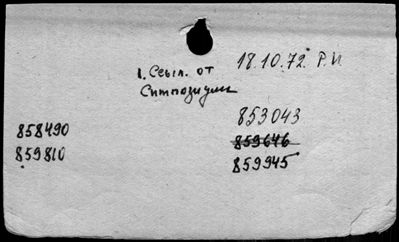 18.10.72. Р.И
1. Ссыл. от
Симпозиумы
853043
858490
859646
859810
859945